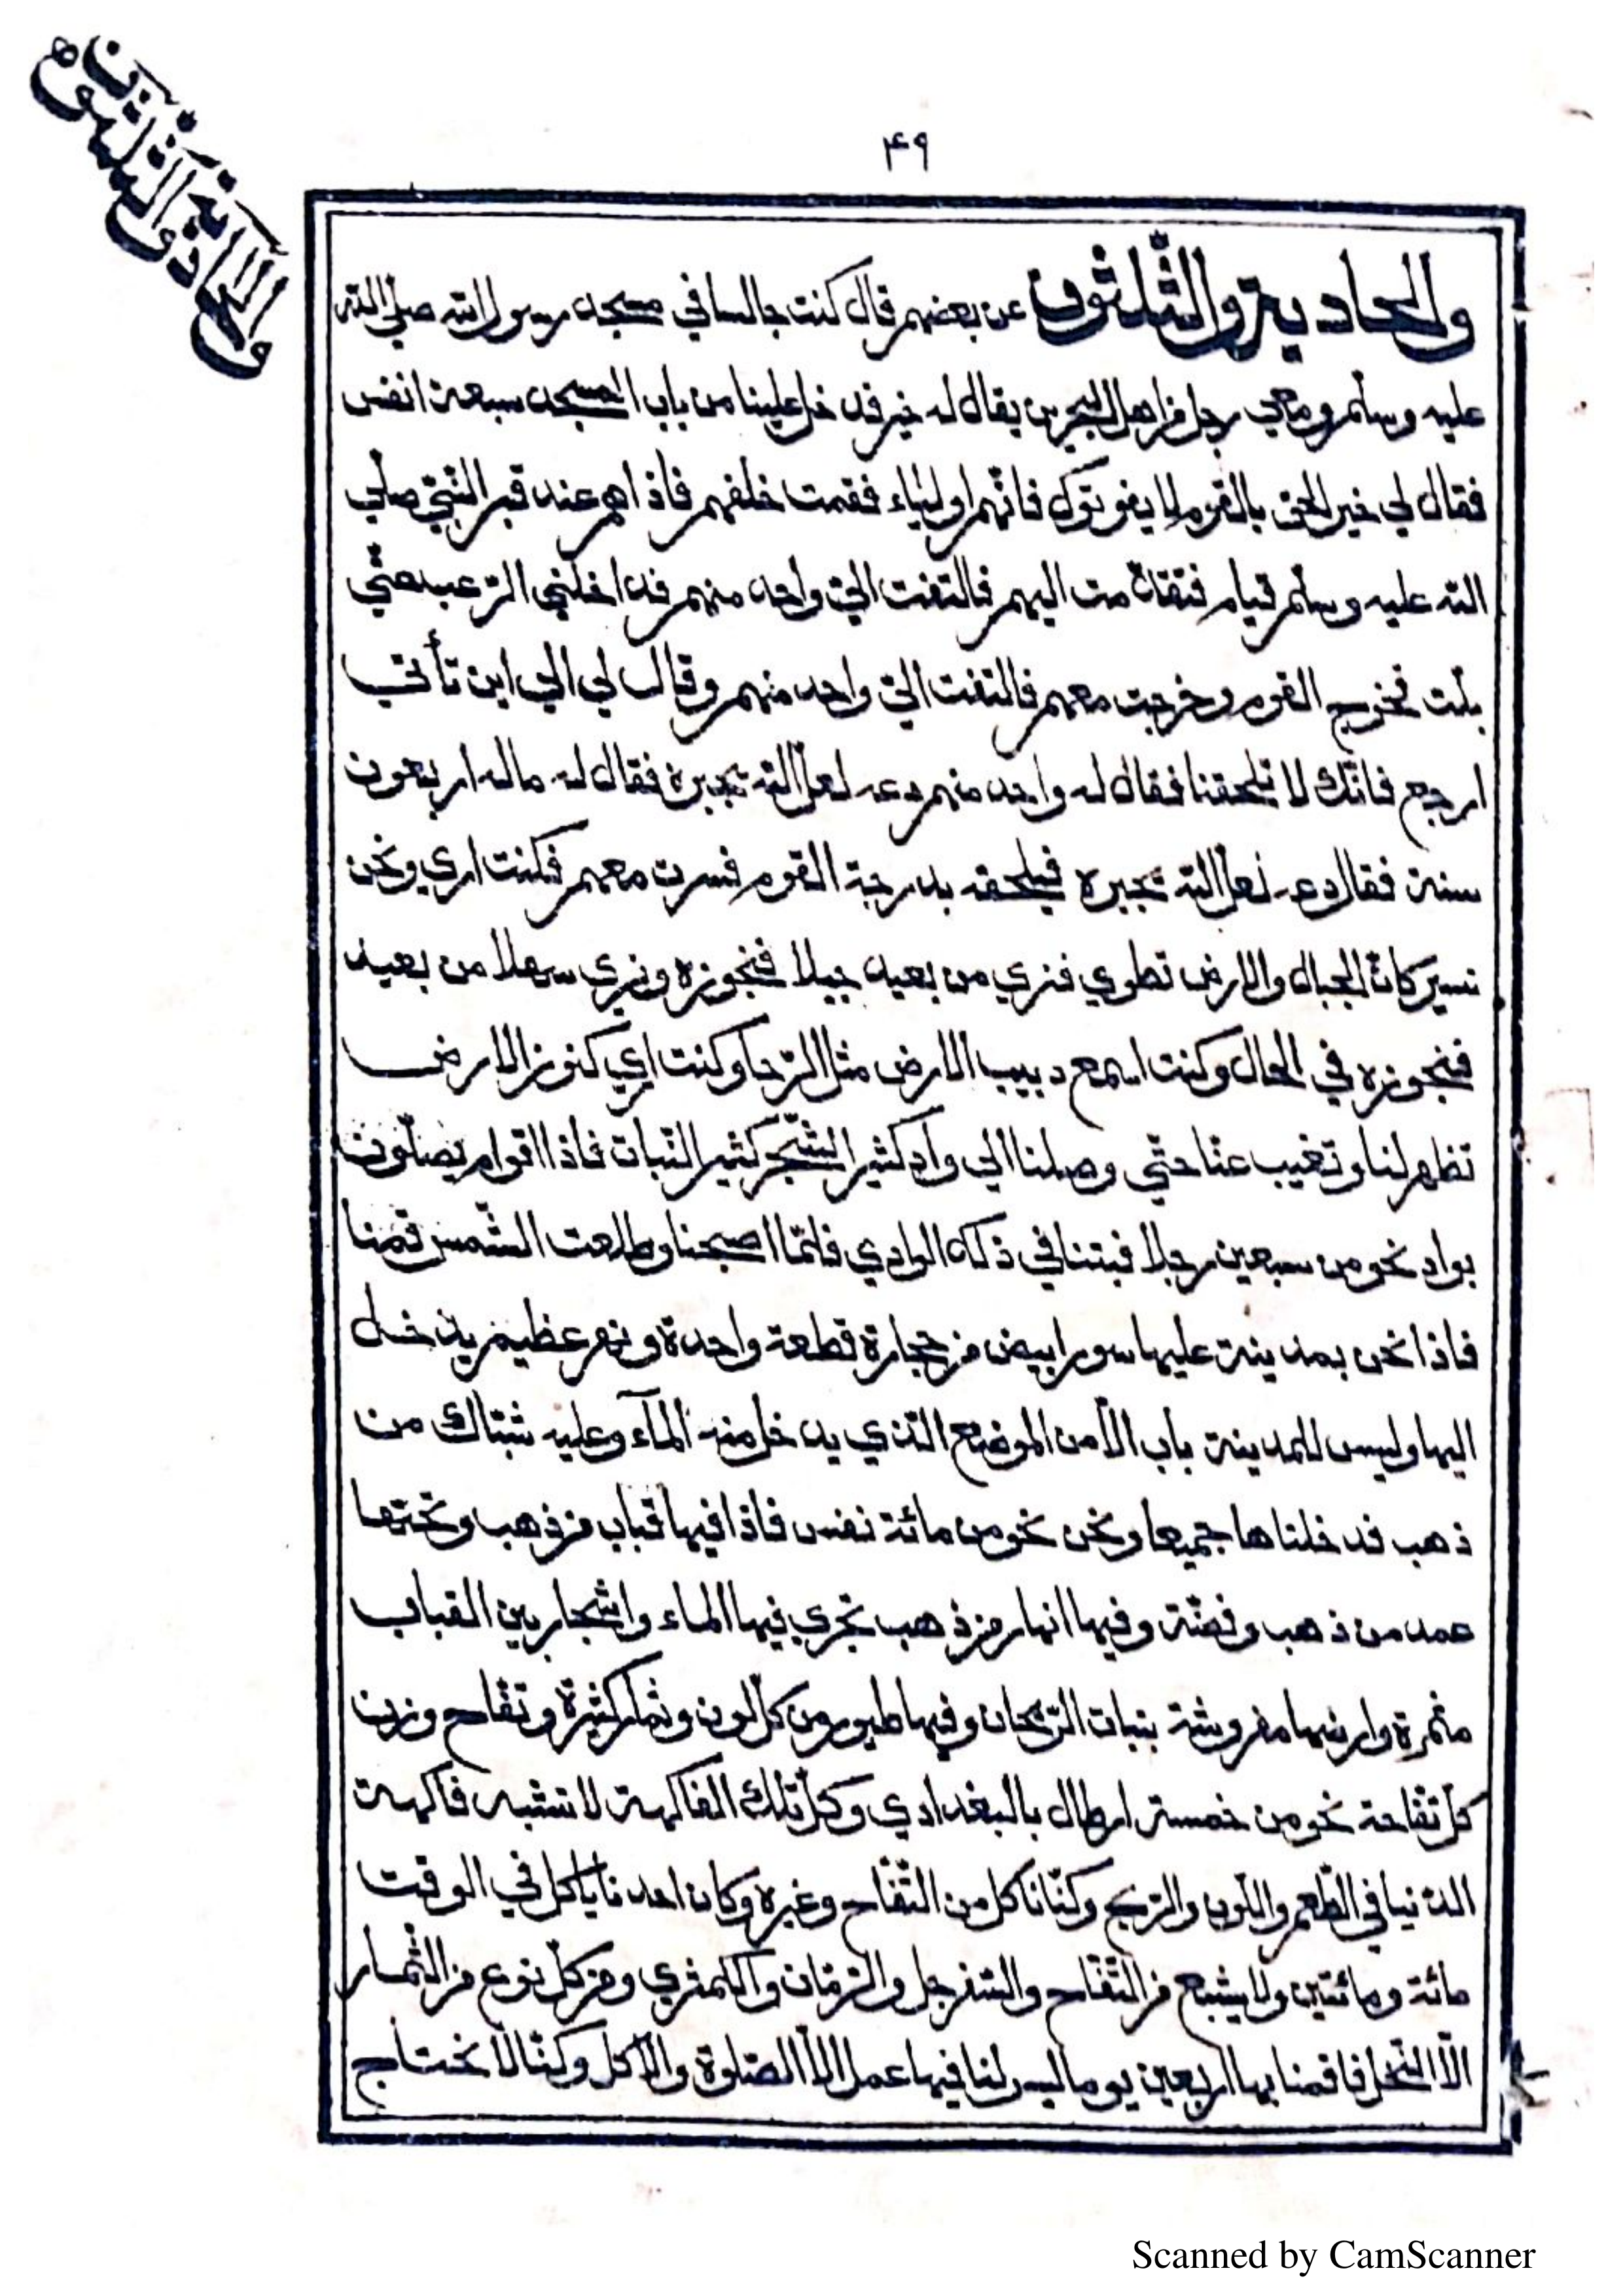 ۴۹
والحادية والثلثون
والحادية والثّلثون عن بعضهم قال كنت جالسا في مسجد رسول الله صلّي الله
عليه وسلّم ومعي رجل من اهل البحرين يقال له خير فدخل علينا من باب المسجد سبعة انفس
فقال لي خير الحق بالقوم لا يفوتوك فانّهم اولياء فقمت خلفهم فاذاهم عند قبر النّبيّ صلّي
الله عليه وسلّم قيام فتقدّمت اليهم فالتفت اليّ واحد منهم فداخلني الرّعب حتّي
بلت فخرج القوم وخرجت معهم فالتفت اليّ واحد منهم وقال لي الي اين تأتي
ارجع فانّك لا تلحقنا فقال له واحد منهم دعه لعلّ الله يجبره فقال له ماله اربعون
سنة فقال دعه لعلّ الله يجبره فيلحقه بدرجة القوم فسرت معهم فكنت اري ونحن
نسير كانّ الجبال والارض تطوي فنري من بعيد جبلا فنجوزه ونري سهلا من بعيد
فنجوزه في الحال وكنت اسمع دبيب الارض مثل الرّحا وكنت اري كنوز الارض
تظهر لنا وتغيب عنّا حتّي وصلنا الي واد كثير الشّجر كثير النّبات فاذا اقوام يصلّون
بواد نحو من سبعين رجلا فبتنا في ذلك الوادي فلمّا اصبحنا وطلعت الشّمس قمنا
فاذا نحن بمدينة عليها سور ابيض من حجارة قطعة واحدة ونهر عظيم يدخل
اليها وليس للمدينة باب الّا من الموضع الّذي يدخل منه المآء وعليه شبّاك من
ذهب فدخلناها جميعا ونحن نحو من مائة نفس فاذا فيها قباب من ذهب وتحتها
عمد من ذهب وفضّة وفيها انهار من ذهب تجري فيها الماء واشجار بين القباب
مثمرة وارضها مفروشة بنبات الرّيحان وفيها طيور من كلّ لون وثمار كثيرة وتفّاح وزن
كلّ تفّاحة نحو من خمسة ارطال بالبغدادي وكلّ تلك الفاكهة لا تشبه فاكهة
الدّنيا في الطّعم واللّون والرّيح وكنّا ناكل من التّفّاح وغيره وكان احدنا ياكل في الوقت
مائة ومائتين ولا يشبع من التّفّاح والسّفرجل والرّمّان والكمثري ومن كلّ نوع من الثّمار
الّا النّخل فاقمنا بها اربعين يوما ليس لنا فيها عمل الّا الصّلوة والاكل وكنّا لا نحتاج
Scanned by CamScanner